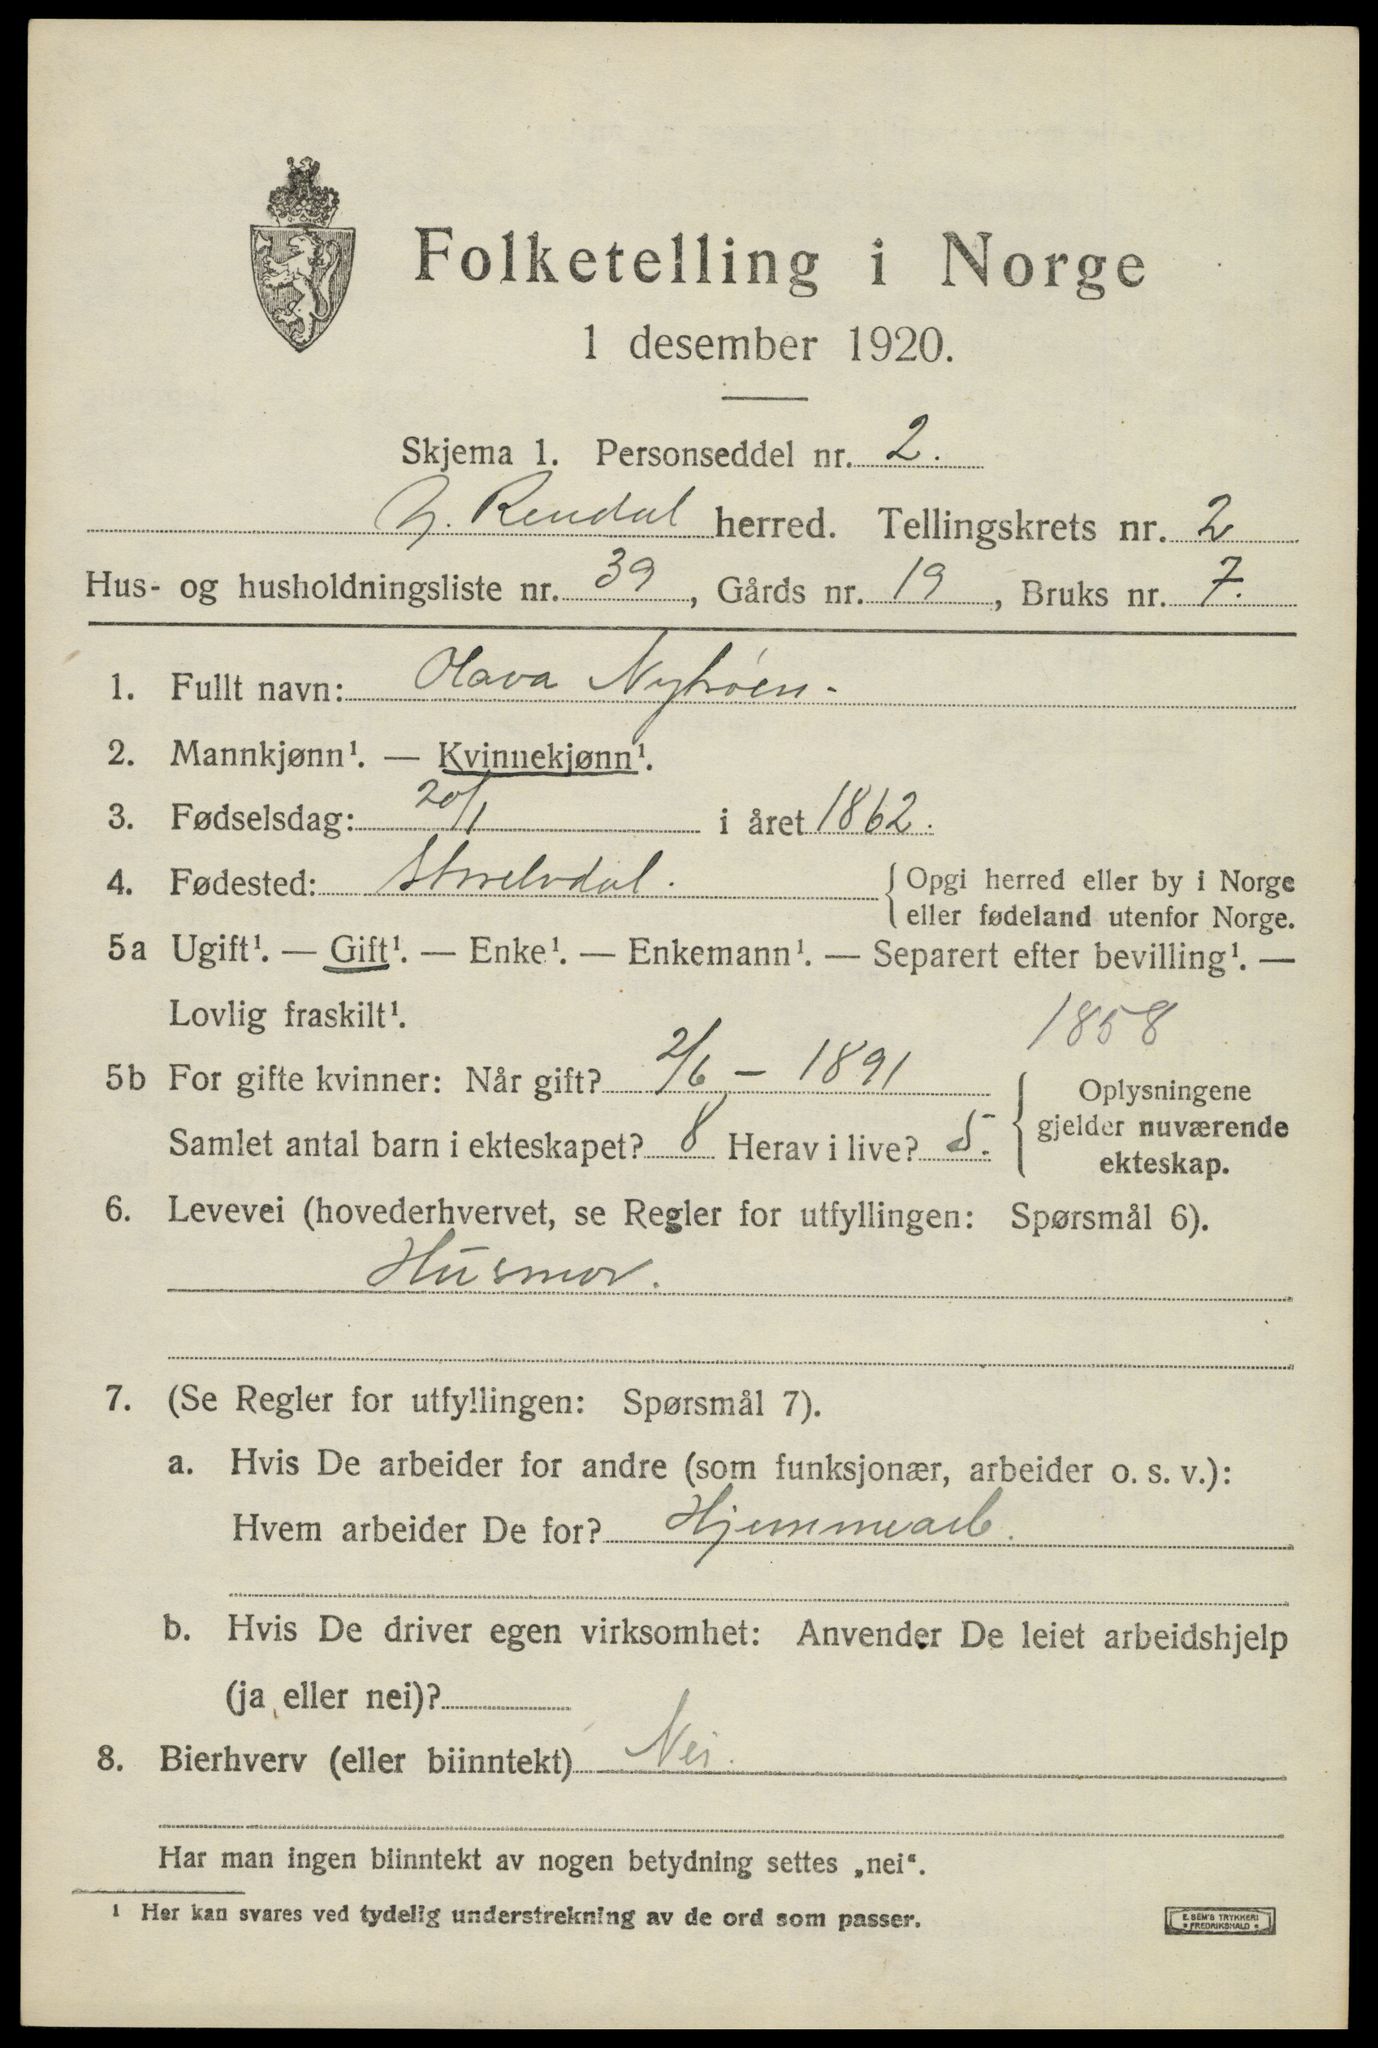 Folketelling i Norge
1 desember 1920.
Skjema 1. Personseddel nr. 2.
Y. Rendal herred. Tellingskrets nr. 2
Hus- og husholdningsliste nr. 39, Gårds nr. 19, Bruks nr. 7.
1. Fullt navn: Olava Nytrøen.
2. Mannkjønn¹. — Kvinnekjønn¹.
3. Fødselsdag: 20/1 i året 1862.
4. Fødested: Storelvdal. Opgi herred eller by i Norge
eller fødeland utenfor Norge.
5a Ugift¹. — Gift¹. — Enke¹. — Enkemann¹. — Separert efter bevilling¹. —
Lovlig fraskilt¹.
1858
5b For gifte kvinner: Når gift? 2/6 - 1891
Samlet antal barn i ekteskapet? 8 Herav i live? 5.
Oplysningene
gjelder nuværende
ekteskap.
6. Levevei (hovederhvervet, se Regler for utfyllingen: Spørsmål 6).
Husmor.
7. (Se Regler for utfyllingen: Spørsmål 7).
a. Hvis De arbeider for andre (som funksjonær, arbeider o. s. v.):
Hvem arbeider De for? Hjemmearb.
b. Hvis De driver egen virksomhet: Anvender De leiet arbeidshjelp
(ja eller nei)?
8. Bierhverv (eller biinntekt) Nei.
Har man ingen biinntekt av nogen betydning settes „nei“.
¹ Her kan svares ved tydelig understrekning av de ord som passer.
E. SEM'S TRYKKERI
FREDRIKSHALD